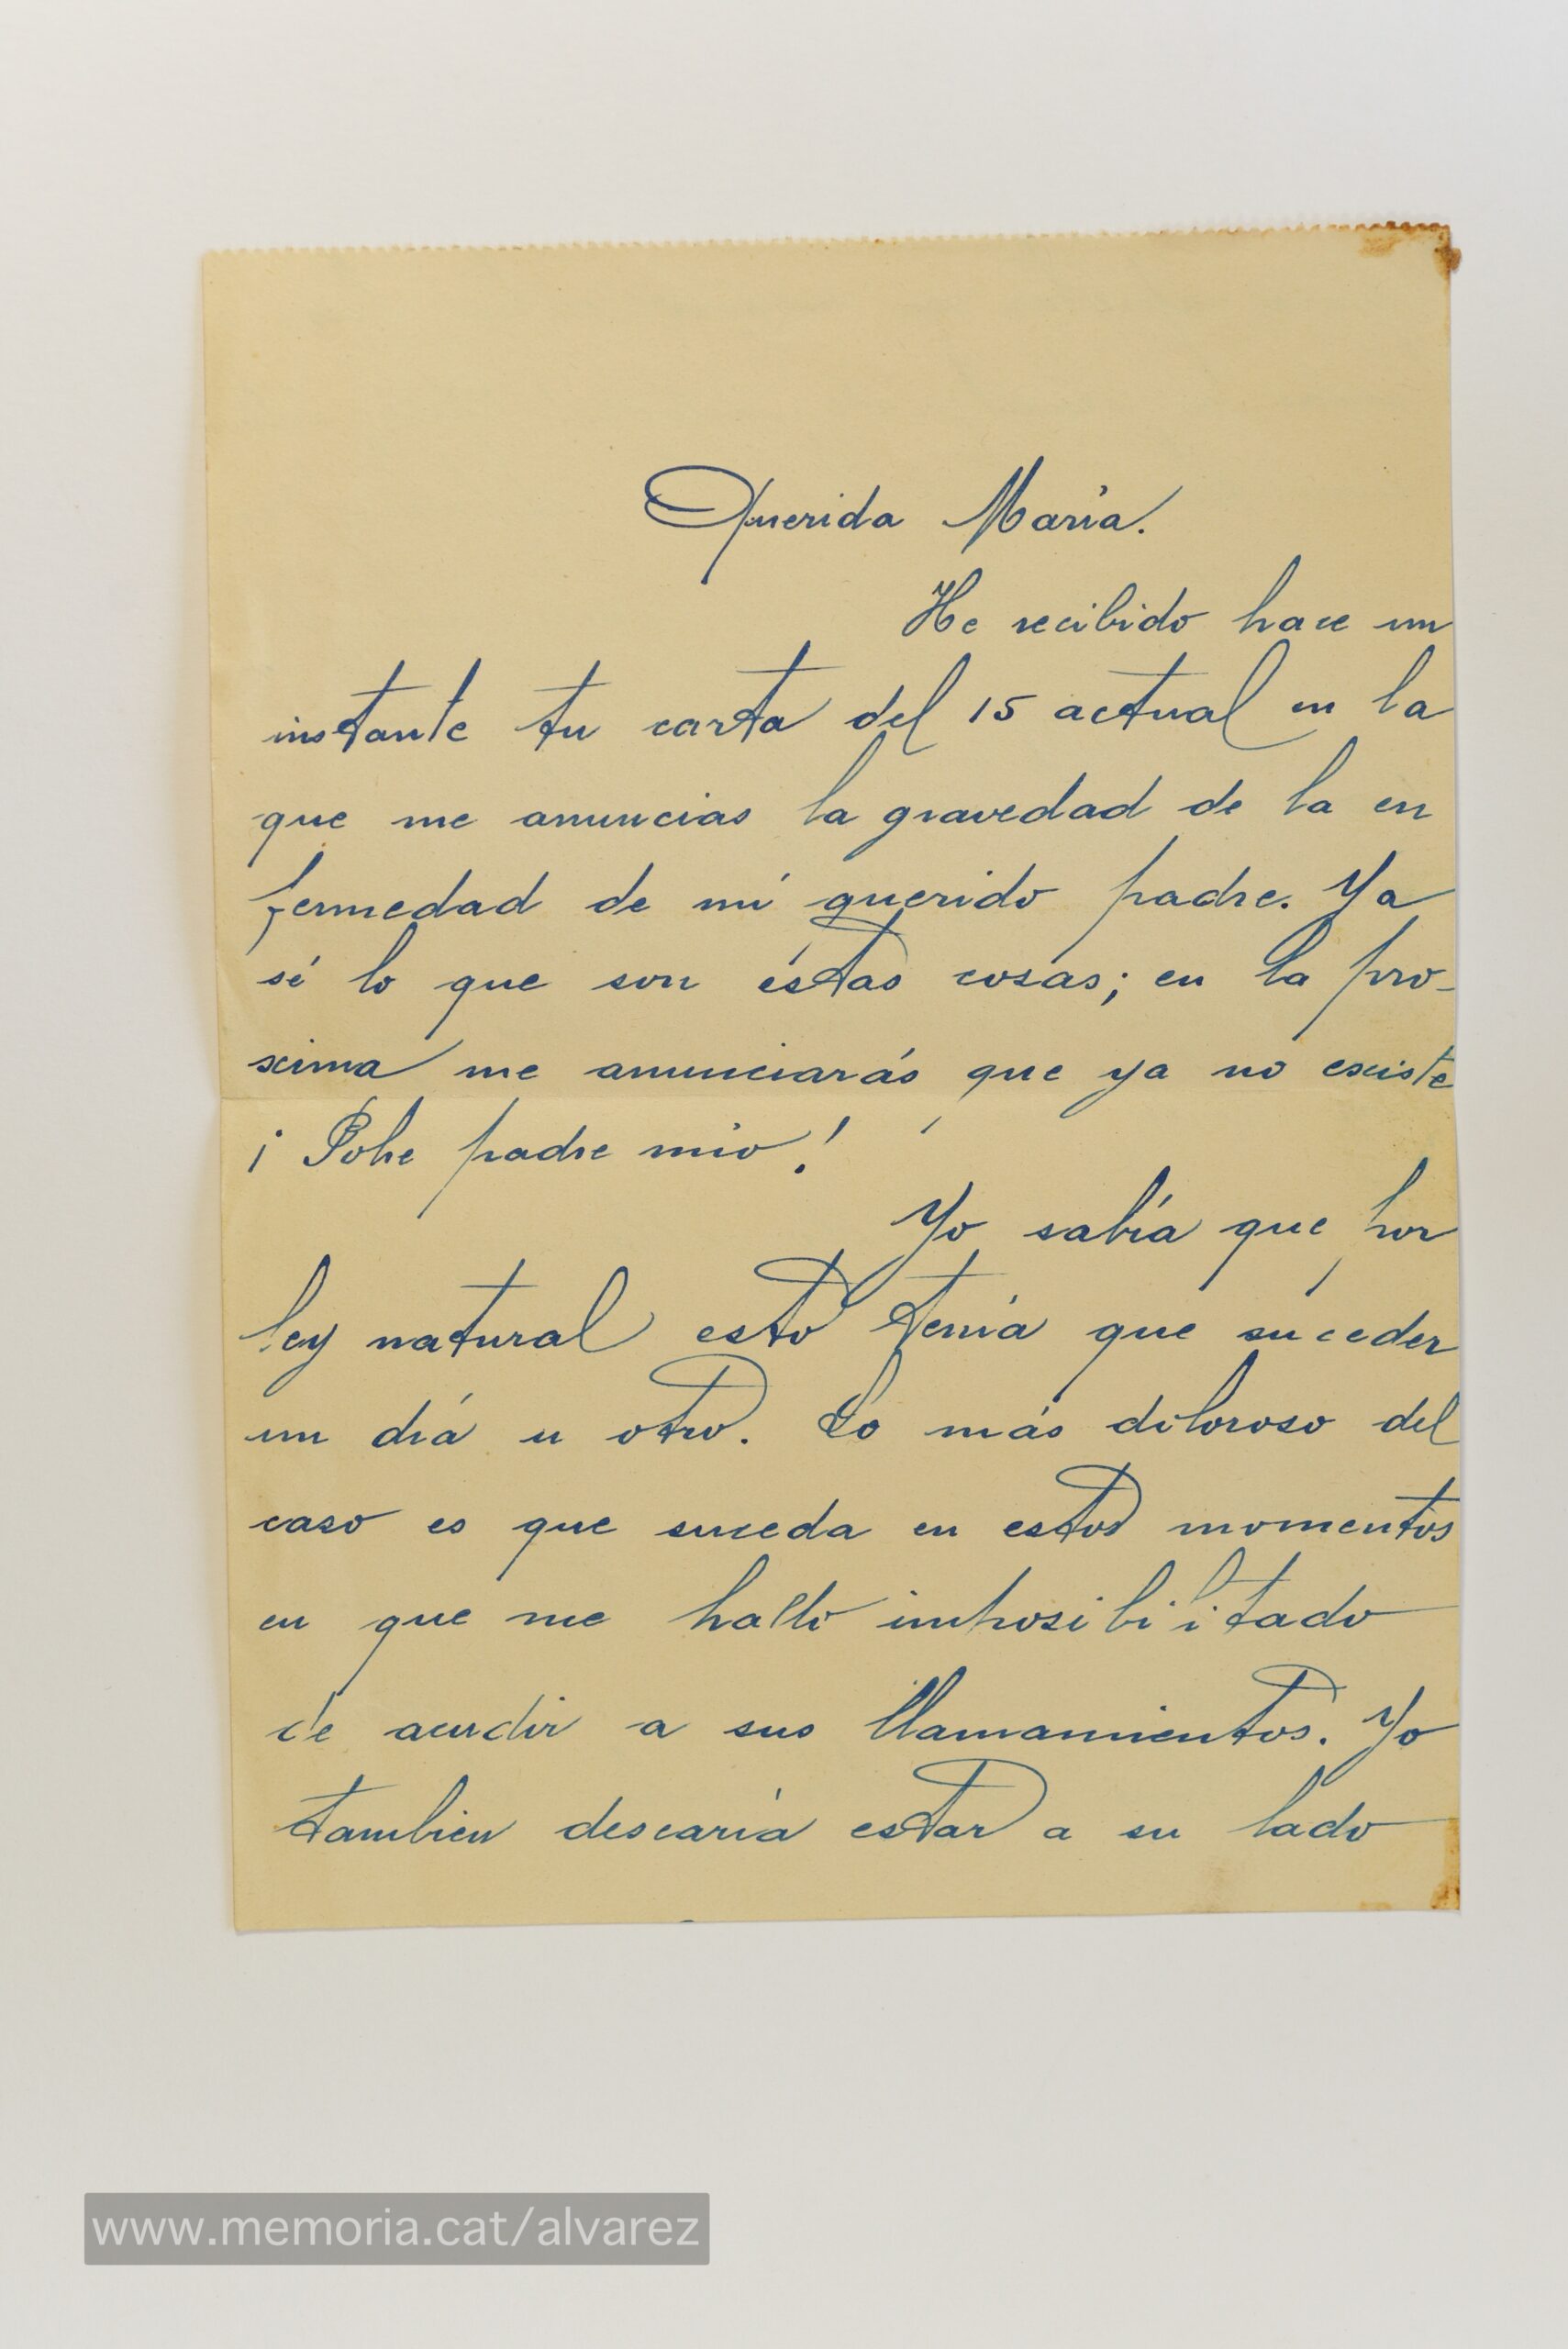 Querida María.
He recibido hace un
instante tu carta del 15 actual en la
que me anuncias la gravedad de la en
fermedad de mi querido padre. Ya
sé lo que son éstas cosas; en la pro-
xima me anunciarás que ya no existe
¡Pobre padre mío!
Yo sabía que por
ley natural esto tenía que suceder
un día u otro. Lo más doloroso del
caso es que suceda en estos momentos
en que me hallo imposibilitado
de acudir a sus llamamientos. Yo
tambien desearía estar a su lado
www.memoria.cat/alvarez